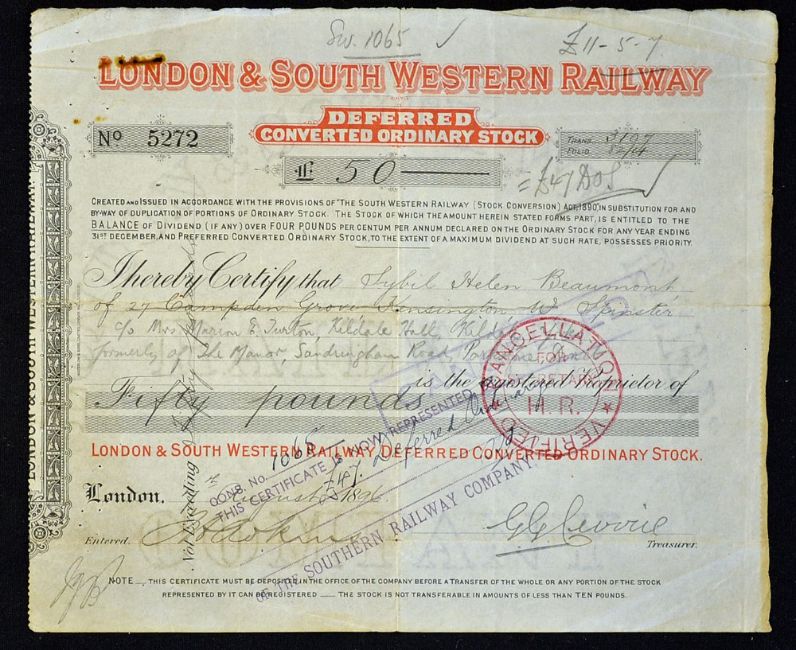 Sw. 1065 ✓
£11-5-7.
LONDON & SOUTH WESTERN RAILWAY
DEFERRED
CONVERTED ORDINARY STOCK
No 5272
TRANS.
FOLIO
£ 50
CREATED AND ISSUED IN ACCORDANCE WITH THE PROVISIONS OF "THE SOUTH WESTERN RAILWAY (STOCK CONVERSION) ACT, 1890, IN SUBSTITUTION FOR AND
BY-WAY OF DUPLICATION OF PORTIONS OF ORDINARY STOCK. THE STOCK OF WHICH THE AMOUNT HEREIN STATED FORMS PART, IS ENTITLED TO THE
BALANCE OF DIVIDEND (IF ANY) OVER FOUR POUNDS PER CENTUM PER ANNUM DECLARED ON THE ORDINARY STOCK FOR ANY YEAR ENDING
31ST DECEMBER, AND PREFERRED CONVERTED ORDINARY STOCK, TO THE EXTENT OF A MAXIMUM DIVIDEND AT SUCH RATE, POSSESSES PRIORITY.
I hereby Certify that Sybil Helen Beaumont
of 27 Campden Grove Kensington W. Spinster
c/o Mrs Marion E. Turton, Kildale Hall, Kildale
formerly of The Manor, Sandringham Road, Parkstone
is the registered Proprietor of
Fifty pounds
LONDON & SOUTH WESTERN RAILWAY DEFERRED CONVERTED ORDINARY STOCK.
London, August 1896
Entered.
Treasurer.
CANCELLATION VERIFIED
FOR
SECRETARY
H.R.
CONS. No. 1065
THIS CERTIFICATE IS NOW REPRESENTED
£47 Deferred
OF THE SOUTHERN RAILWAY COMPANY.
NOTE — THIS CERTIFICATE MUST BE DEPOSITED IN THE OFFICE OF THE COMPANY BEFORE A TRANSFER OF THE WHOLE OR ANY PORTION OF THE STOCK
REPRESENTED BY IT CAN BE REGISTERED — THE STOCK IS NOT TRANSFERABLE IN AMOUNTS OF LESS THAN TEN POUNDS.